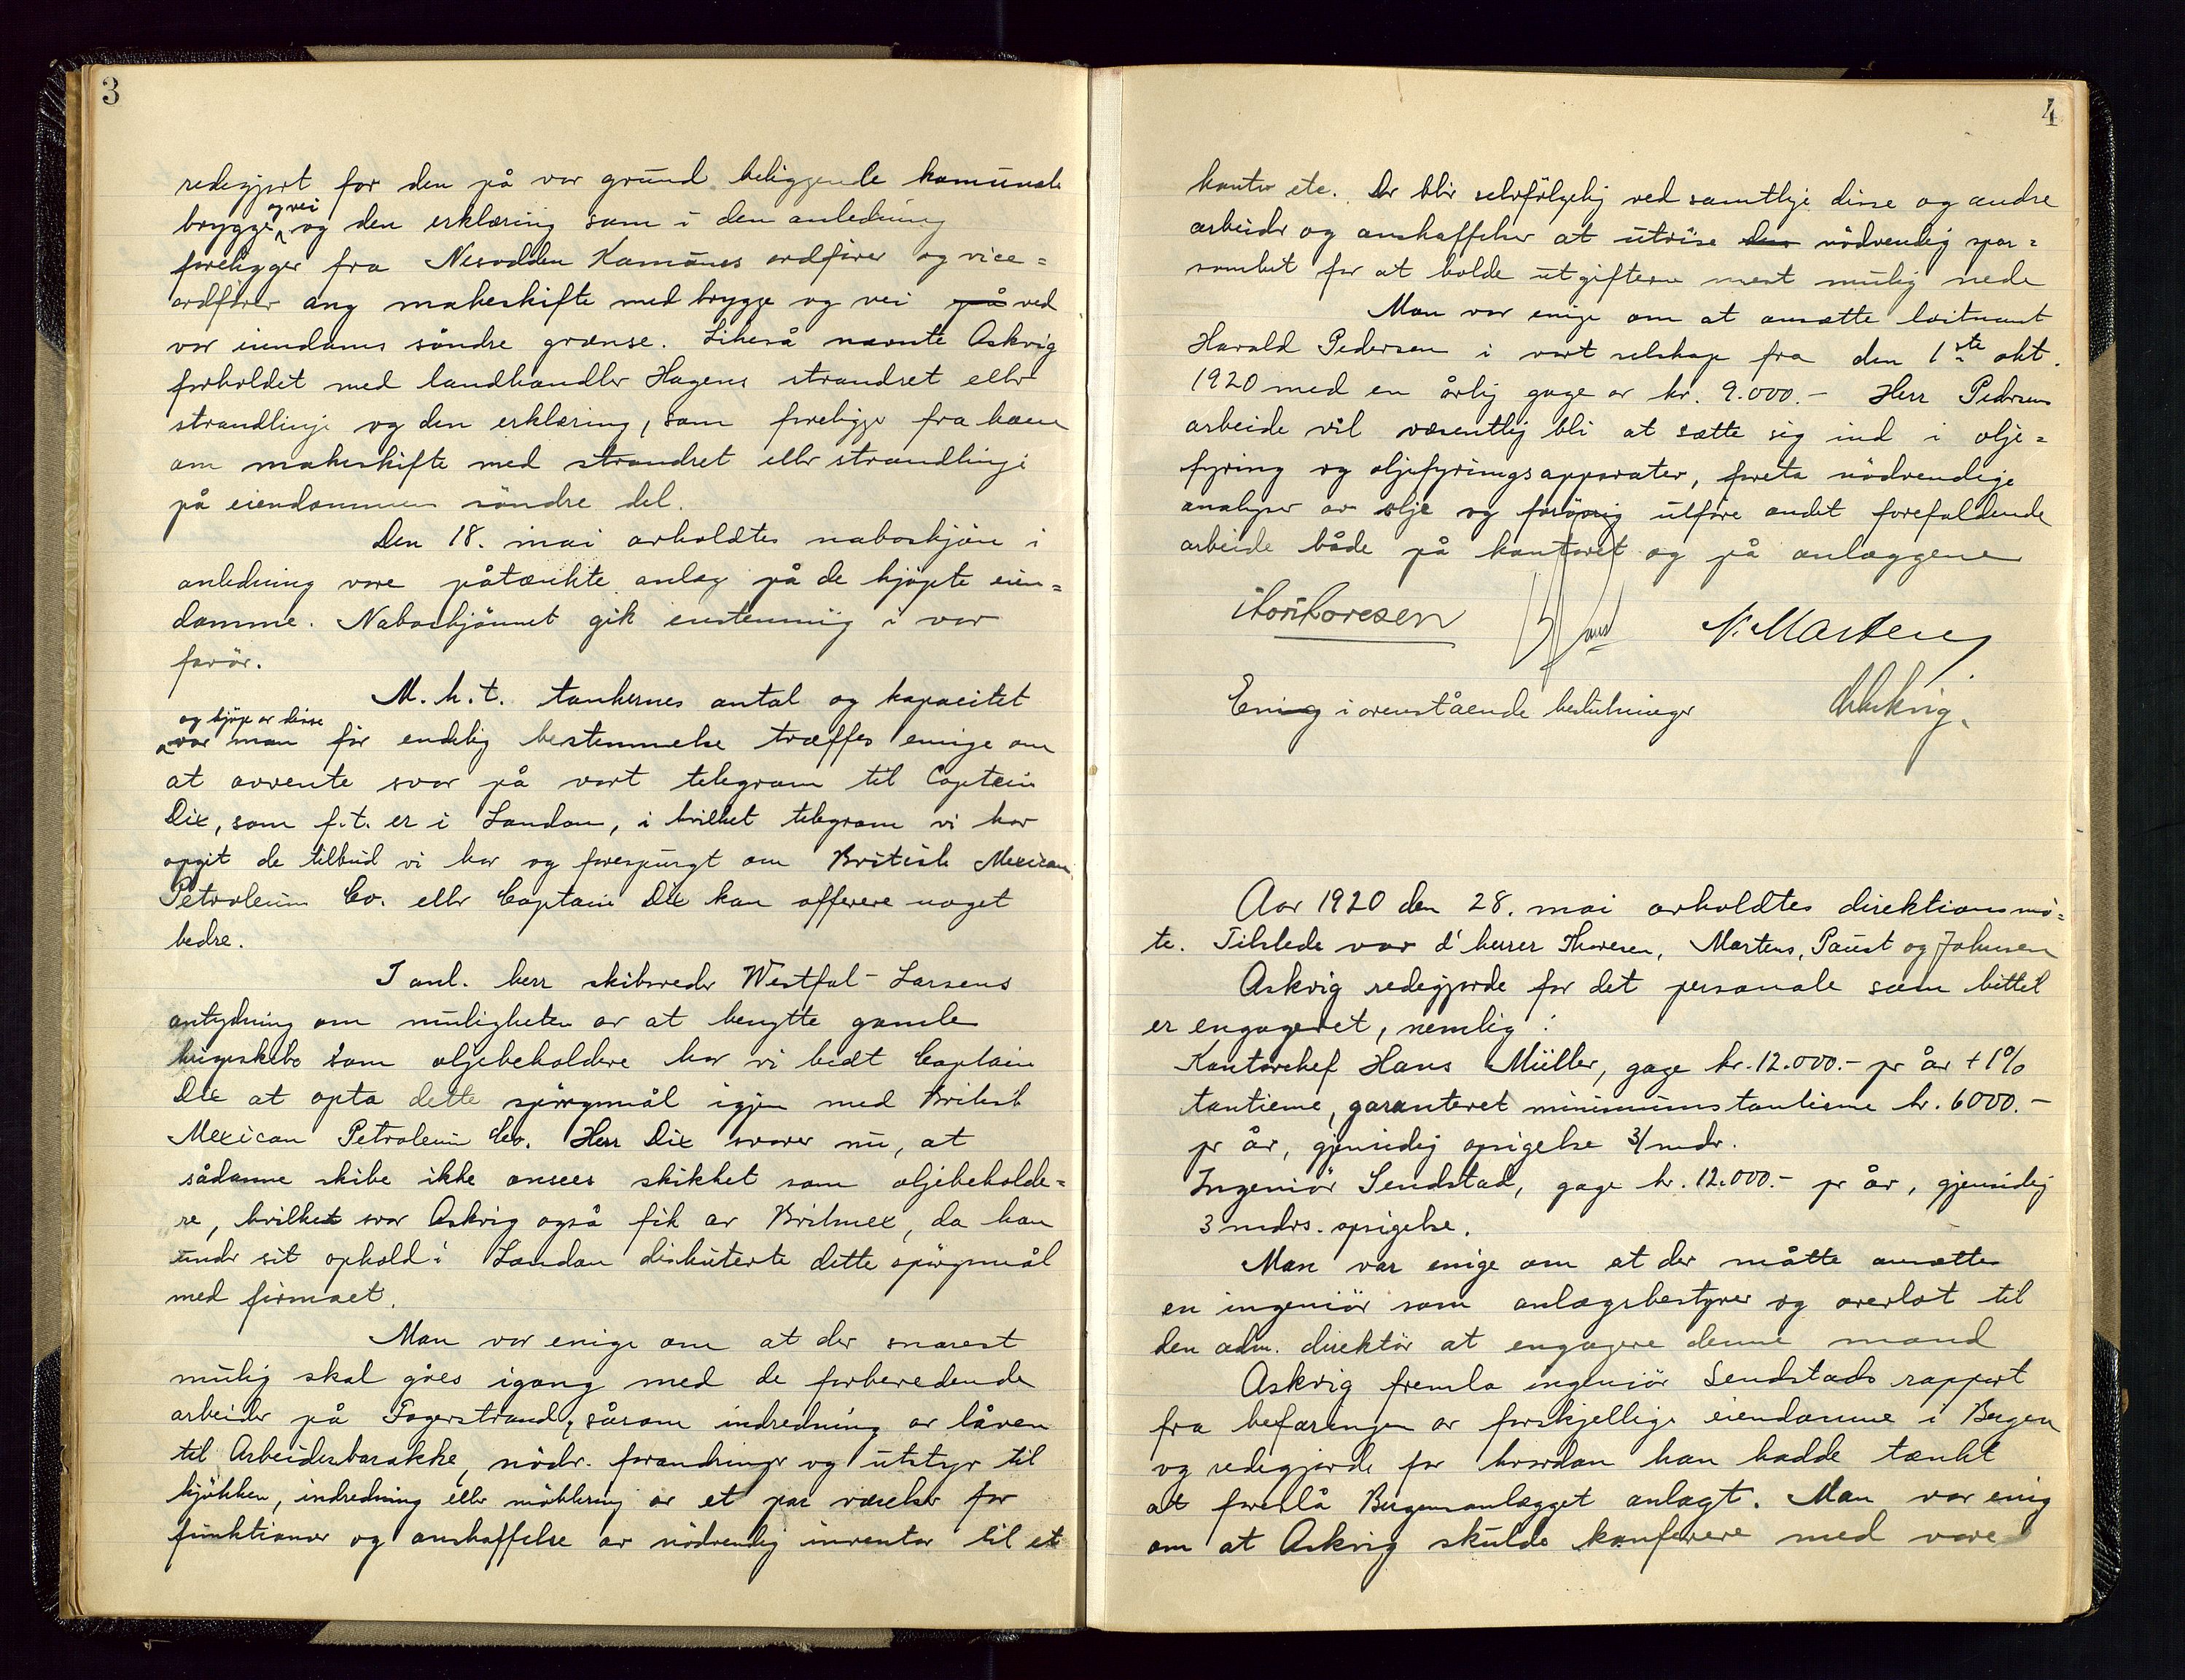 3
redegjort for den på vor grund beliggende komunale
og vei
brygge, og den erklæring som i den anledning
foreligger fra Nesodden Komunes ordfører og vice=
ordfører ang makeskifte med brygge og vei på ved
vor eiendams söndre grænse. Likeså nævnte Askvig
forholdet med landhandler Hagens strandret eller
strandlinje og den erklæring, som foreligger fra ham
om makeskifte med strandret eller strandlinje
på eiendommens söndre del.
Den 18. mai avholdtes naboskjön i
anledning vore påtænkte anlæg på de kjöpte eien=
domme. Naboskjönnet gik enstemmig i vor
favör.
M.h.t. tankernes antal og kapacitet
og kjöp av disse
var man för endelig bestemmelse træffes enige om
at avvente svar på vort telegram til Captein
Dix, som f.t. er i London, i hvilket telegram vi har
opgit de tilbud vi har og forespurgt om British Mexican
Petroleum Co. eller Captain Dix kan offerere noget
bedre.
I anl. herr skibsreder Westfal-Larsens
antydning om muligheten av at benytte gamle
krigsskibe som oljebeholdere har vi bedt Captain
Dix at opta dette spörgsmål igjen med British
Mexican Petroleum Co. Herr Dix svarer nu, at
sådanne skibe ikke ansees skikket som oljebeholde=
re, hvilket svar Askvig også fik av Britmex, da han
under sit ophold i London diskuterte dette spörgsmål
med firmaet.
Man var enige om at der snarest
mulig skal göres igang med de forberedende
arbeider på Fagerstrand, såsom indredning av låven
til Arbeiderbarakke, nödv. forandringer og utstyr til
kjökken, indredning eller möblering av et par værelser for
funktionær og anskaffelse av nödvendig inventar til et
4
kontor etc. Der blir selvfölgelig ved samtlige disse og andre
arbeider og anskaffelser at utvise den nödvendig spar=
somhet for at holde utgifterne mest mulig nede
Man var enige om at ansætte löitnant
Harald Pedersen i vort selskap fra den 1ste okt.
1920 med en årlig gage av kr. 9.000.- Herr Pedersens
arbeide vil væsentlig bli at sætte sig ind i olje=
fyring og oljefyringsapparater, foreta nödvendige
analyser av olje og forövrig utföre andet forefaldende
arbeide både på kontoret og på anlæggene
N. Martens
Enig i ovenstående beslutninger Askvig.
Aar 1920 den 28. mai avholdtes direktionsmö=
te. Tilstede var d' herrer Thoresen, Martens, Paust og Johnsen
Askvig redegjorde for det personale som hittil
er engageret, nemlig:
Kontorchef Hans Müller, gage kr. 12.000.- pr år + 1%
tantieme, garanteret minimumstantieme kr. 6000.-
pr år, gjensidig opsigelse 3/mdr.
Ingeniör Sendstad, gage kr. 12.000.- pr år, gjensidig
3 mdrs. opsigelse.
Man var enige om at der måtte ansættes
en ingeniör som anlægsbestyrer og overlot til
den adm. direktör at engagere denne mand
Askvig fremla ingeniör Sendstads rapport
fra befaringen av forskjellige eiendomme i Bergen
og redegjorde for hvordan han hadde tænkt
at foreslå Bergensanlægget anlagt. Man var enig
om at Askvig skulde konferere med vore